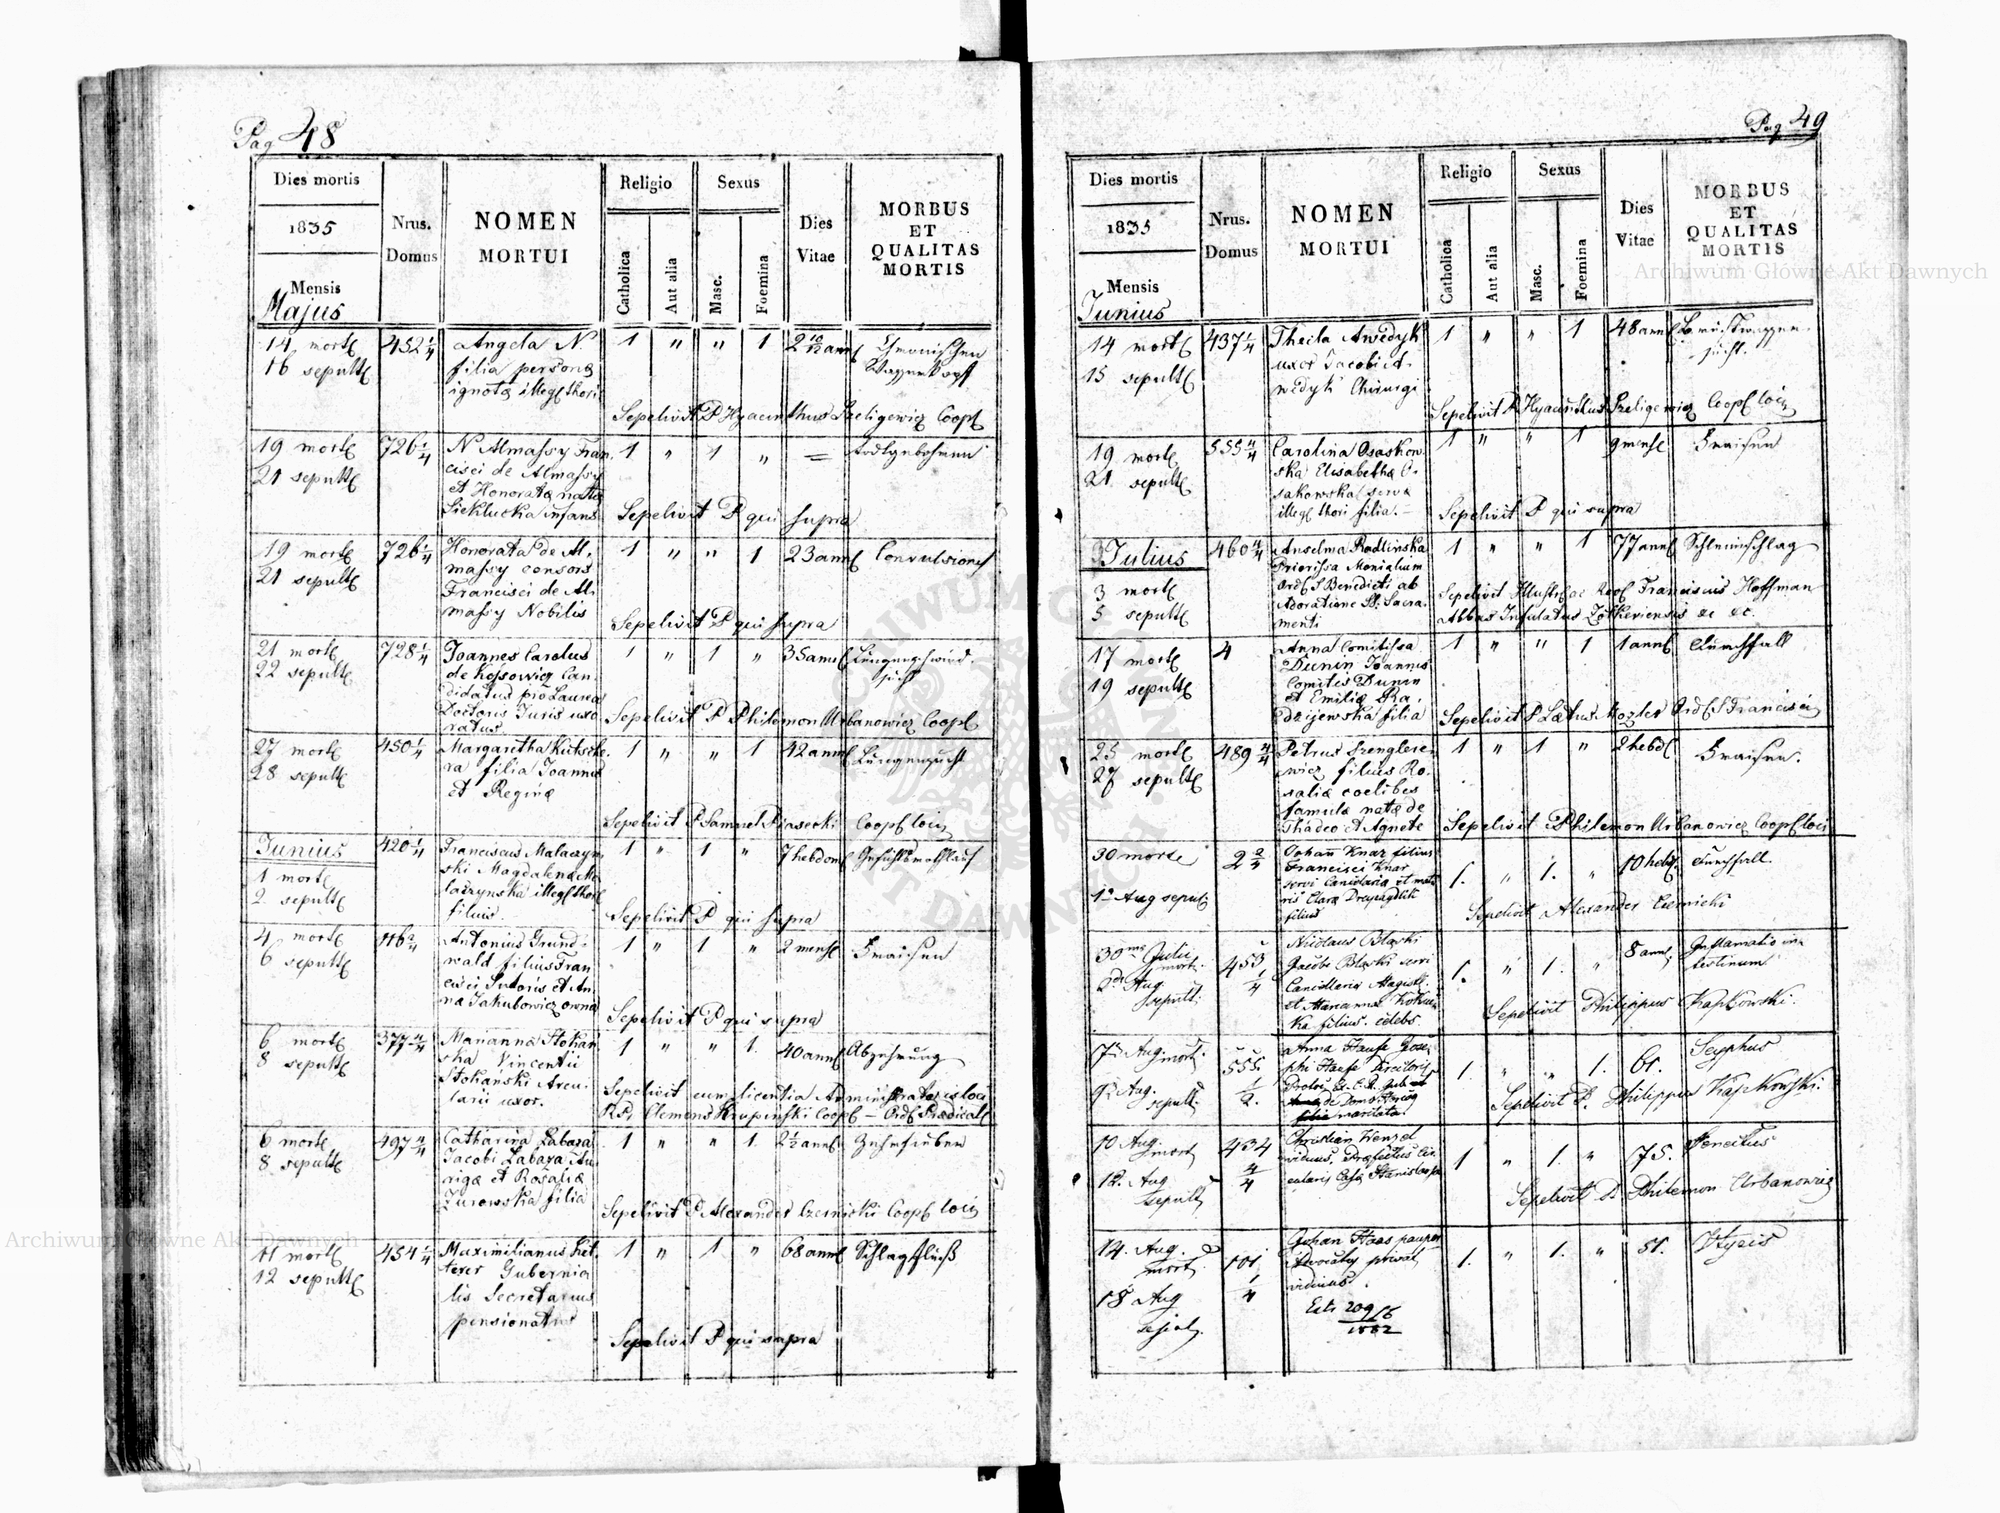 Pag 48
Dies mortis
1835
Mensis
Majus
Nrus.
Domus
NOMEN
MORTUI
Religio
Catholica
Aut alia
Sexus
Masc.
Foemina
Dies
Vitae
MORBUS
ET
QUALITAS
MORTIS
14 mort
16 sepult
452 1/4
Angela N.
filia persona
ignota illeg thori
1 " " 1
2 10/12 ann
Chronischen
Wasserkopf
Sepelivit P Hyacinthus Szeligewicz Coop
19 mort
21 sepult
726 1/4
N Almassy Fran
cisci de Almassy
et Honorata nata
Siklucka infans
1 " 1 " =
Todtgebohren
Sepelivit P qui supra
19 mort
21 sepult
726 1/4
Honorata de Al.
massy consors
Francisci de Al
massy Nobilis
1 " " 1
23 ann
Convulsiones
Sepelivit P qui supra
21 mort
22 sepult
728 1/4
Joannes Carolus
de Kossowicz Can
didatus pro Laurea
Doctoris Juris uxo
ratus
1 " 1 "
35 ann
Lungenschwind.
sucht
Sepelivit P Philemon Urbanowicz Coop
27 mort
28 sepult
450 1/4
Margaretha Kutsche
ra filia Joannis
et Regina
1 " " 1
42 ann
Lungensucht
Sepelivit P Samuel Piasecki Coop loci
Junius
1 mort
2 sepult
420 1/4
Franciscus Malaczyn
ski Magdalena Ma
laczynska illeg thori
filius.
1 " 1 "
7 hebdom
Sepelivit P qui supra
4 mort
6 sepult
116 2/4
Antonius Grund
wald filius Fran
cisci Sutoris et An
na Jakubowicz
1 " 1 "
2 mens
Fraisen
Sepelivit P qui supra
6 mort
8 sepult
377 4/4
Marianna Stokan
ska Vincentii
Stokanski Arcu
larii uxor.
1 " " 1.
40 ann
Abzehrung
Sepelivit cum licentia Administratoris loci
Clemens Krupinski Coop — Ord Pradicat
6 mort
8 sepult
497 4/4
Catharina Labaza
Jacobi Labaza Au
riga et Rosalia
Zurowska filia
1 " " 1.
2 1/2 ann
Zehrfieber
Sepelivit P Alexander Czernicki Coop loci
11 mort
12 sepult
454 1/4
Maximilianus
Gubernia
lis Secretarius
pensionatus
1 " 1 "
68 ann
Schlagfluß
Sepelivit P qui supra
Pag 49
Dies mortis
1835
Mensis
Junius
Nrus.
Domus
NOMEN
MORTUI
Religio
Catholica
Aut alia
Sexus
Masc.
Foemina
Dies
Vitae
MORBUS
ET
QUALITAS
MORTIS
14 mort
15 sepult
437 1/4
Theila Awedyk
uxor Jacobi A-
wedyk Chirurgi
1 " " 1
48 ann
Brustwasser-
sucht.
Sepelivit P Hyacinthus Szeligewicz Coop loci
19 mort
21 sepult
555 4/4
Carolina Osakow
ska Elisabetha O-
sakowska serva
illeg thori filia.
1 " " 1
9 mens
Fraisen
Sepelivit P qui supra
Julius
3 mort
5 sepult
460 4/4
Anselma Radlinska
Priorissa Monialium
Ord S Benedicti ab
Adoratione SS: Sacra
menti
1 " " 1
77 ann
Schleimschlag
Sepelivit Illustr ac Rev Franciscus Hoffman
Abbas Infulatus Zolkieviensis &c &c.
17 mort
19 sepult
4
Anna Comitissa
Dunin Joannis
Comitis Dunin
et Emilia Ra
dziejewska filia
1 " " 1
1 ann
Durchfall
Sepelivit P Latus Mozler Ord S Francisci
25 mort
27 sepult
489 4/4
Petrus Szenglere
wicz filius Ro
salia coelibes
famula nata de
Thadeo et Agnete
1 " 1 "
2 hebd
Fraisen.
Sepelivit Philemon Urbanowicz Coop loci
30 morte
1a Aug sepult
2 2/4
Johann Knar filius
Francisci Knar
servi Cancellaria et mat
ris Clara
filius
1. " 1. "
10 hebd.
Durchfall.
Sepelivit Alexander Czernicki
30ma Julii
mort.
2da Aug.
sepult.
453
1/4
Nicolaus Blaski
Jacobi Blaski servi
Cancellaria Magist.
et Marianna
ka filius. celebs
1. " 1. "
8 ann,
Inflamatio in-
testinum
Sepelivit Philippus Kapkowski.
7a Aug mort.
9a Aug.
sepult.
555.
1/2.
Anna Hause Jose
phi Hause Directoris
maritata
1. " " 1. 61.
Scyphus
Sepelivit P. Philippus Kapkowski.
10 Aug
mort
12. Aug
sepult
434
4/4
Christian Wenzel
viduus, Prafectus Cir
cularis
1 " 1. " 75.
Sepelivit P. Philemon Urbanowicz
14. Aug.
mort.
18 Aug
101
1/4
Johan Haas pauper
Advocatus privat
viduus.
1. " 1. " 51.
Ex. 209/16
1882